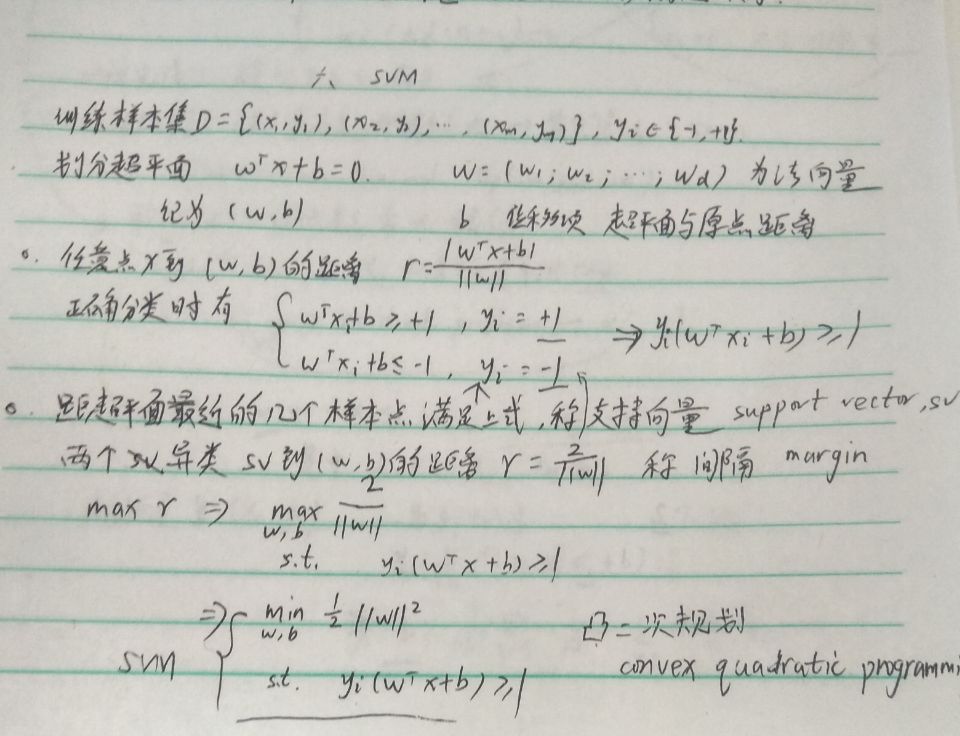 六、 SVM
训练样本集 D = {(x₁, y₁), (x₂, y₂), ⋯, (xₘ, yₘ)}, yᵢ ∈ {-1, +1}.
划分超平面 wᵀx + b = 0. w = (w₁; w₂; ⋯; w_d) 为法向量
记为 (w, b) b 位移项 超平面与原点距离
。任意点 x 到 (w, b) 的距离 r = |wᵀx+b| / ||w||
正确分类时有 { wᵀxᵢ+b ≥ +1 , yᵢ = +1
wᵀxᵢ+b ≤ -1 , yᵢ = -1 ⇒ yᵢ(wᵀxᵢ + b) ≥ 1
。距超平面最近的几个样本点满足上式, 称支持向量 support vector, sv
两个 sv 异类 sv 到 (w, b) 的距离 r = 2 / ||w|| 称 间隔 margin
max r ⇒ max w, b 2 / ||w||
s.t. yᵢ(wᵀx + b) ≥ 1
⇒ { min w, b ½ ||w||² 凸二次规划
SVM convex quadratic programmi
s.t. yᵢ(wᵀx+b) ≥ 1